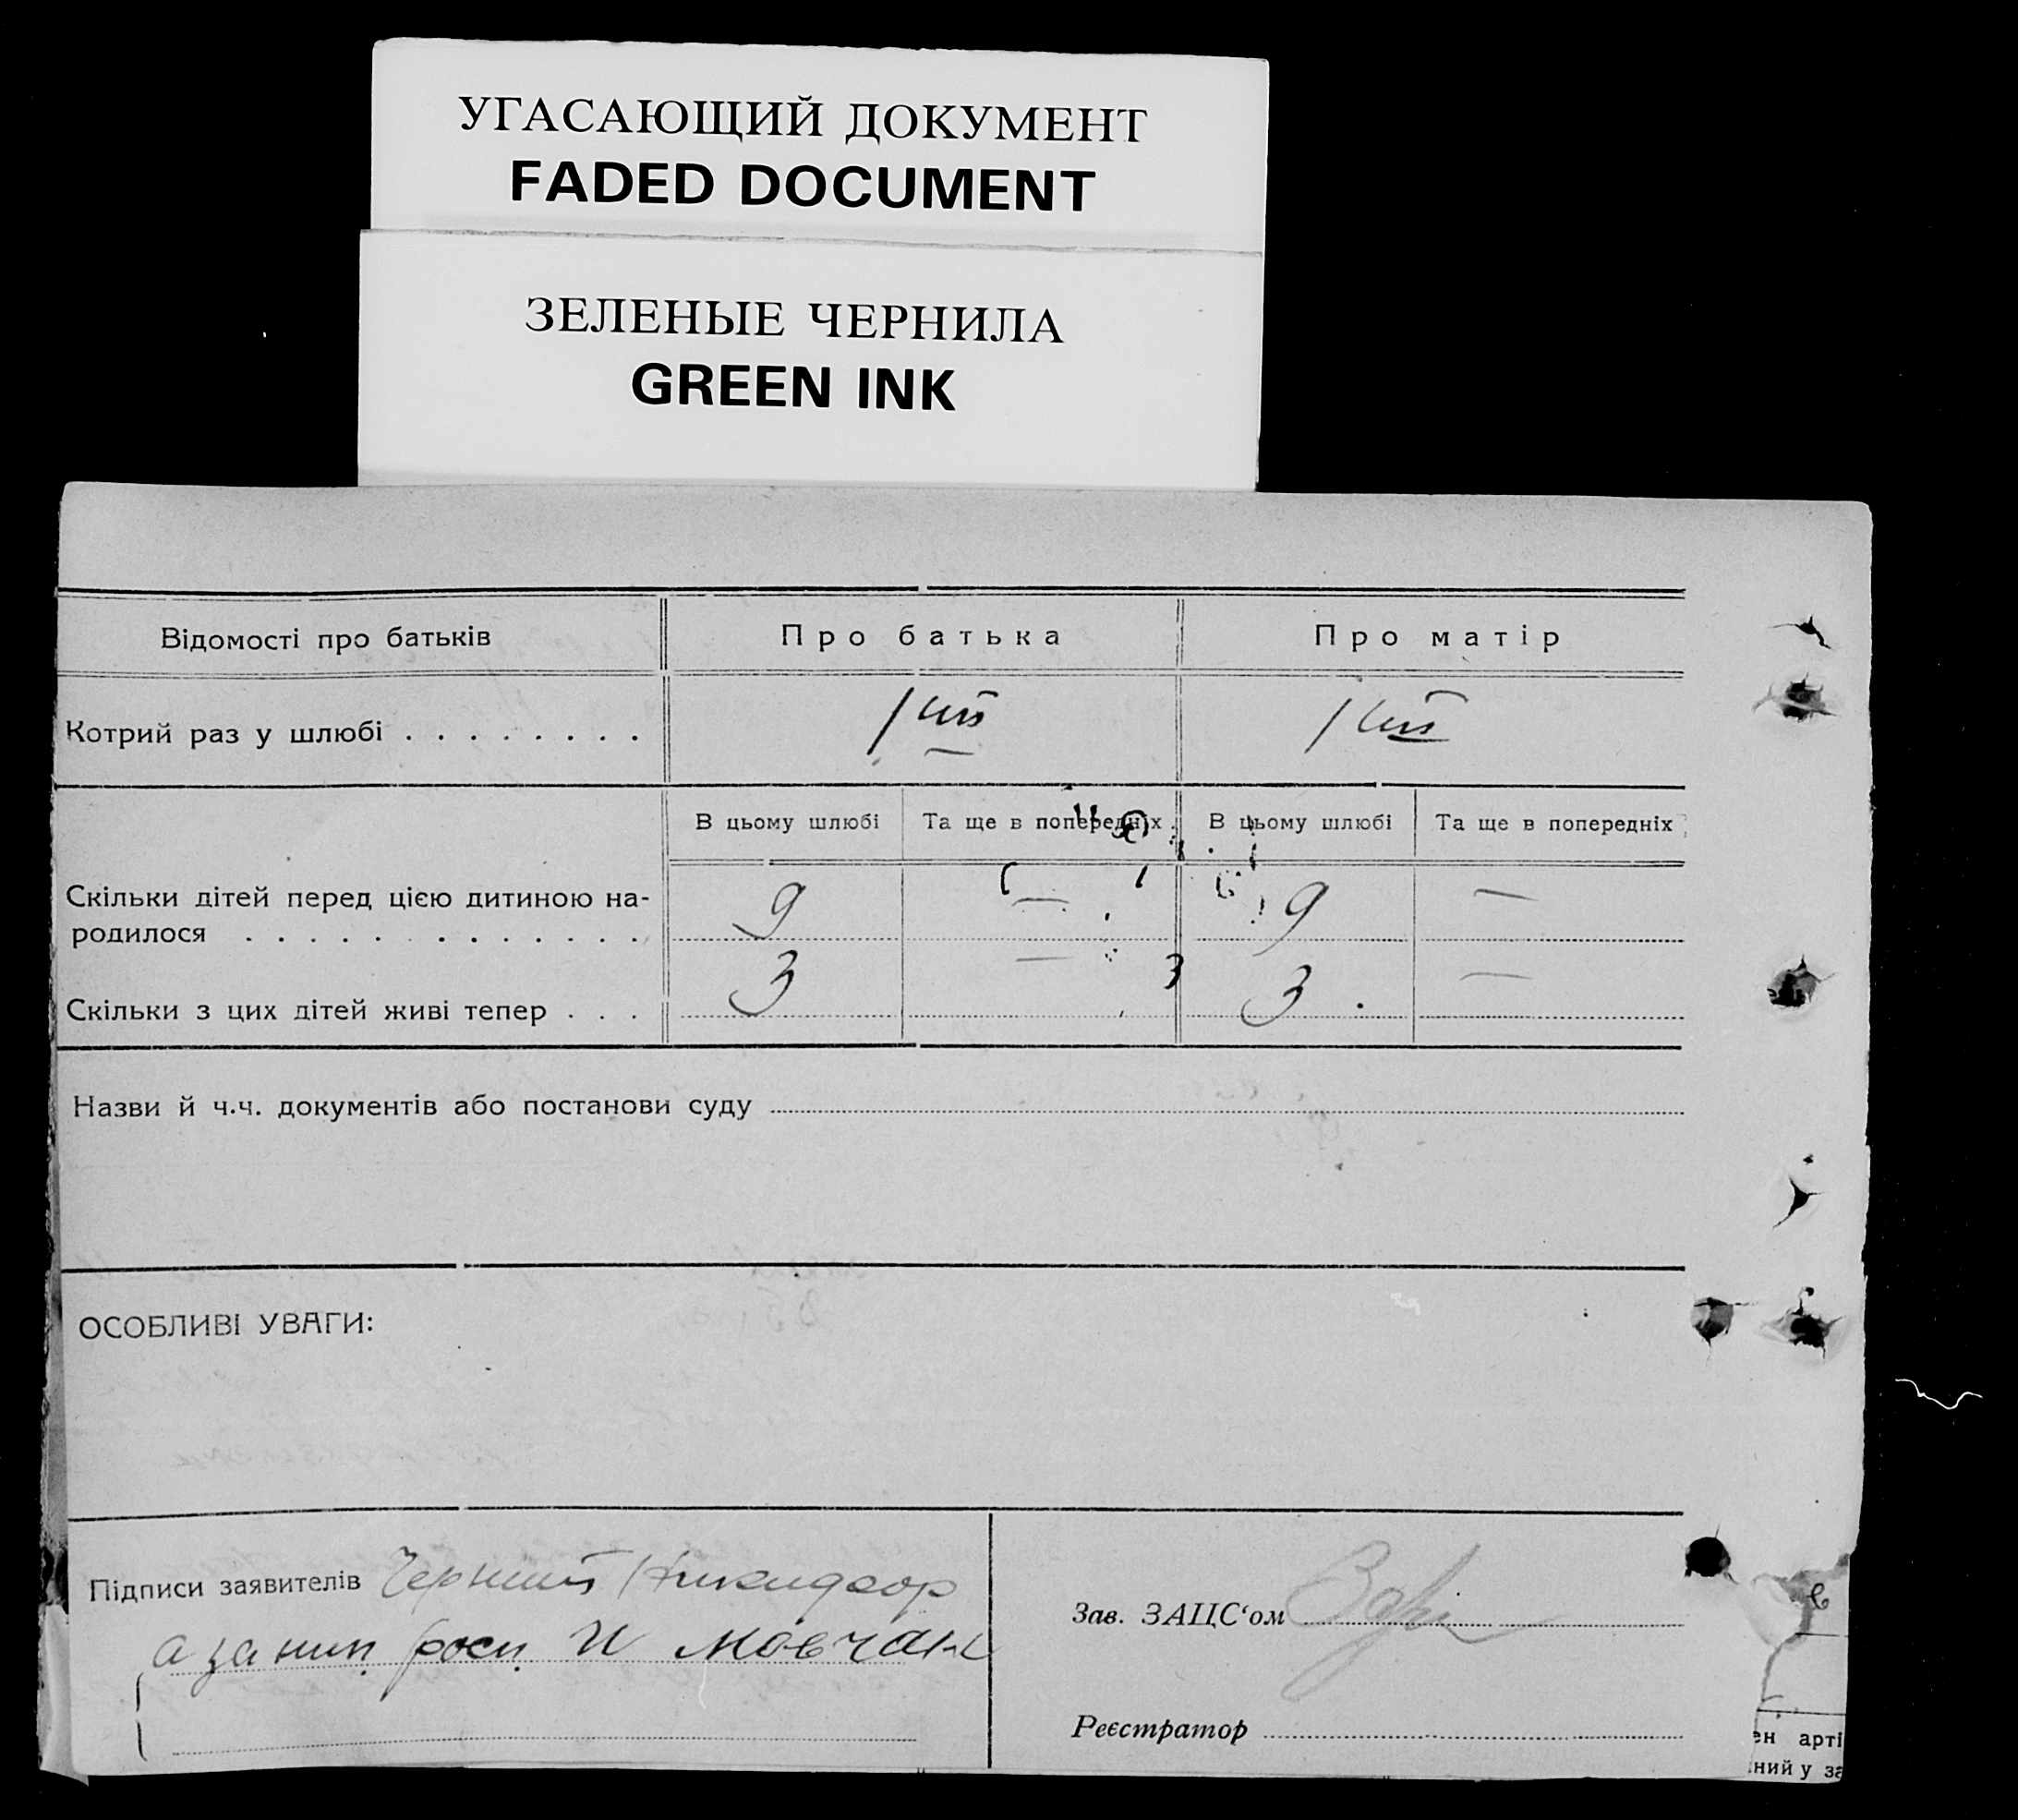 УГАСАЮЩИЙ ДОКУМЕНТ
FADED DOCUMENT
ЗЕЛЕНЫЕ ЧЕРНИЛА
GREEN INK
Відомості про батьків Про батька Про матір
Котрий раз у шлюбі . . . . . . . . 1ший 1ший
В цьому шлюбі Та ще в попередніх В цьому шлюбі Та ще в попередніх
Скільки дітей перед цією дитиною на-
родилося . . . . . . . . . . . . . 9 — 9 —
Скільки з цих дітей живі тепер . . . 3 — 3 —
Назви й ч.ч. документів або постанови суду
ОСОБЛИВІ УВАГИ:
Підписи заявителів Черний Никидфор
а за нип. росп. И Мовчан
Зав. ЗАЦС‘ом
Реєстратор
ен арті
ний у за